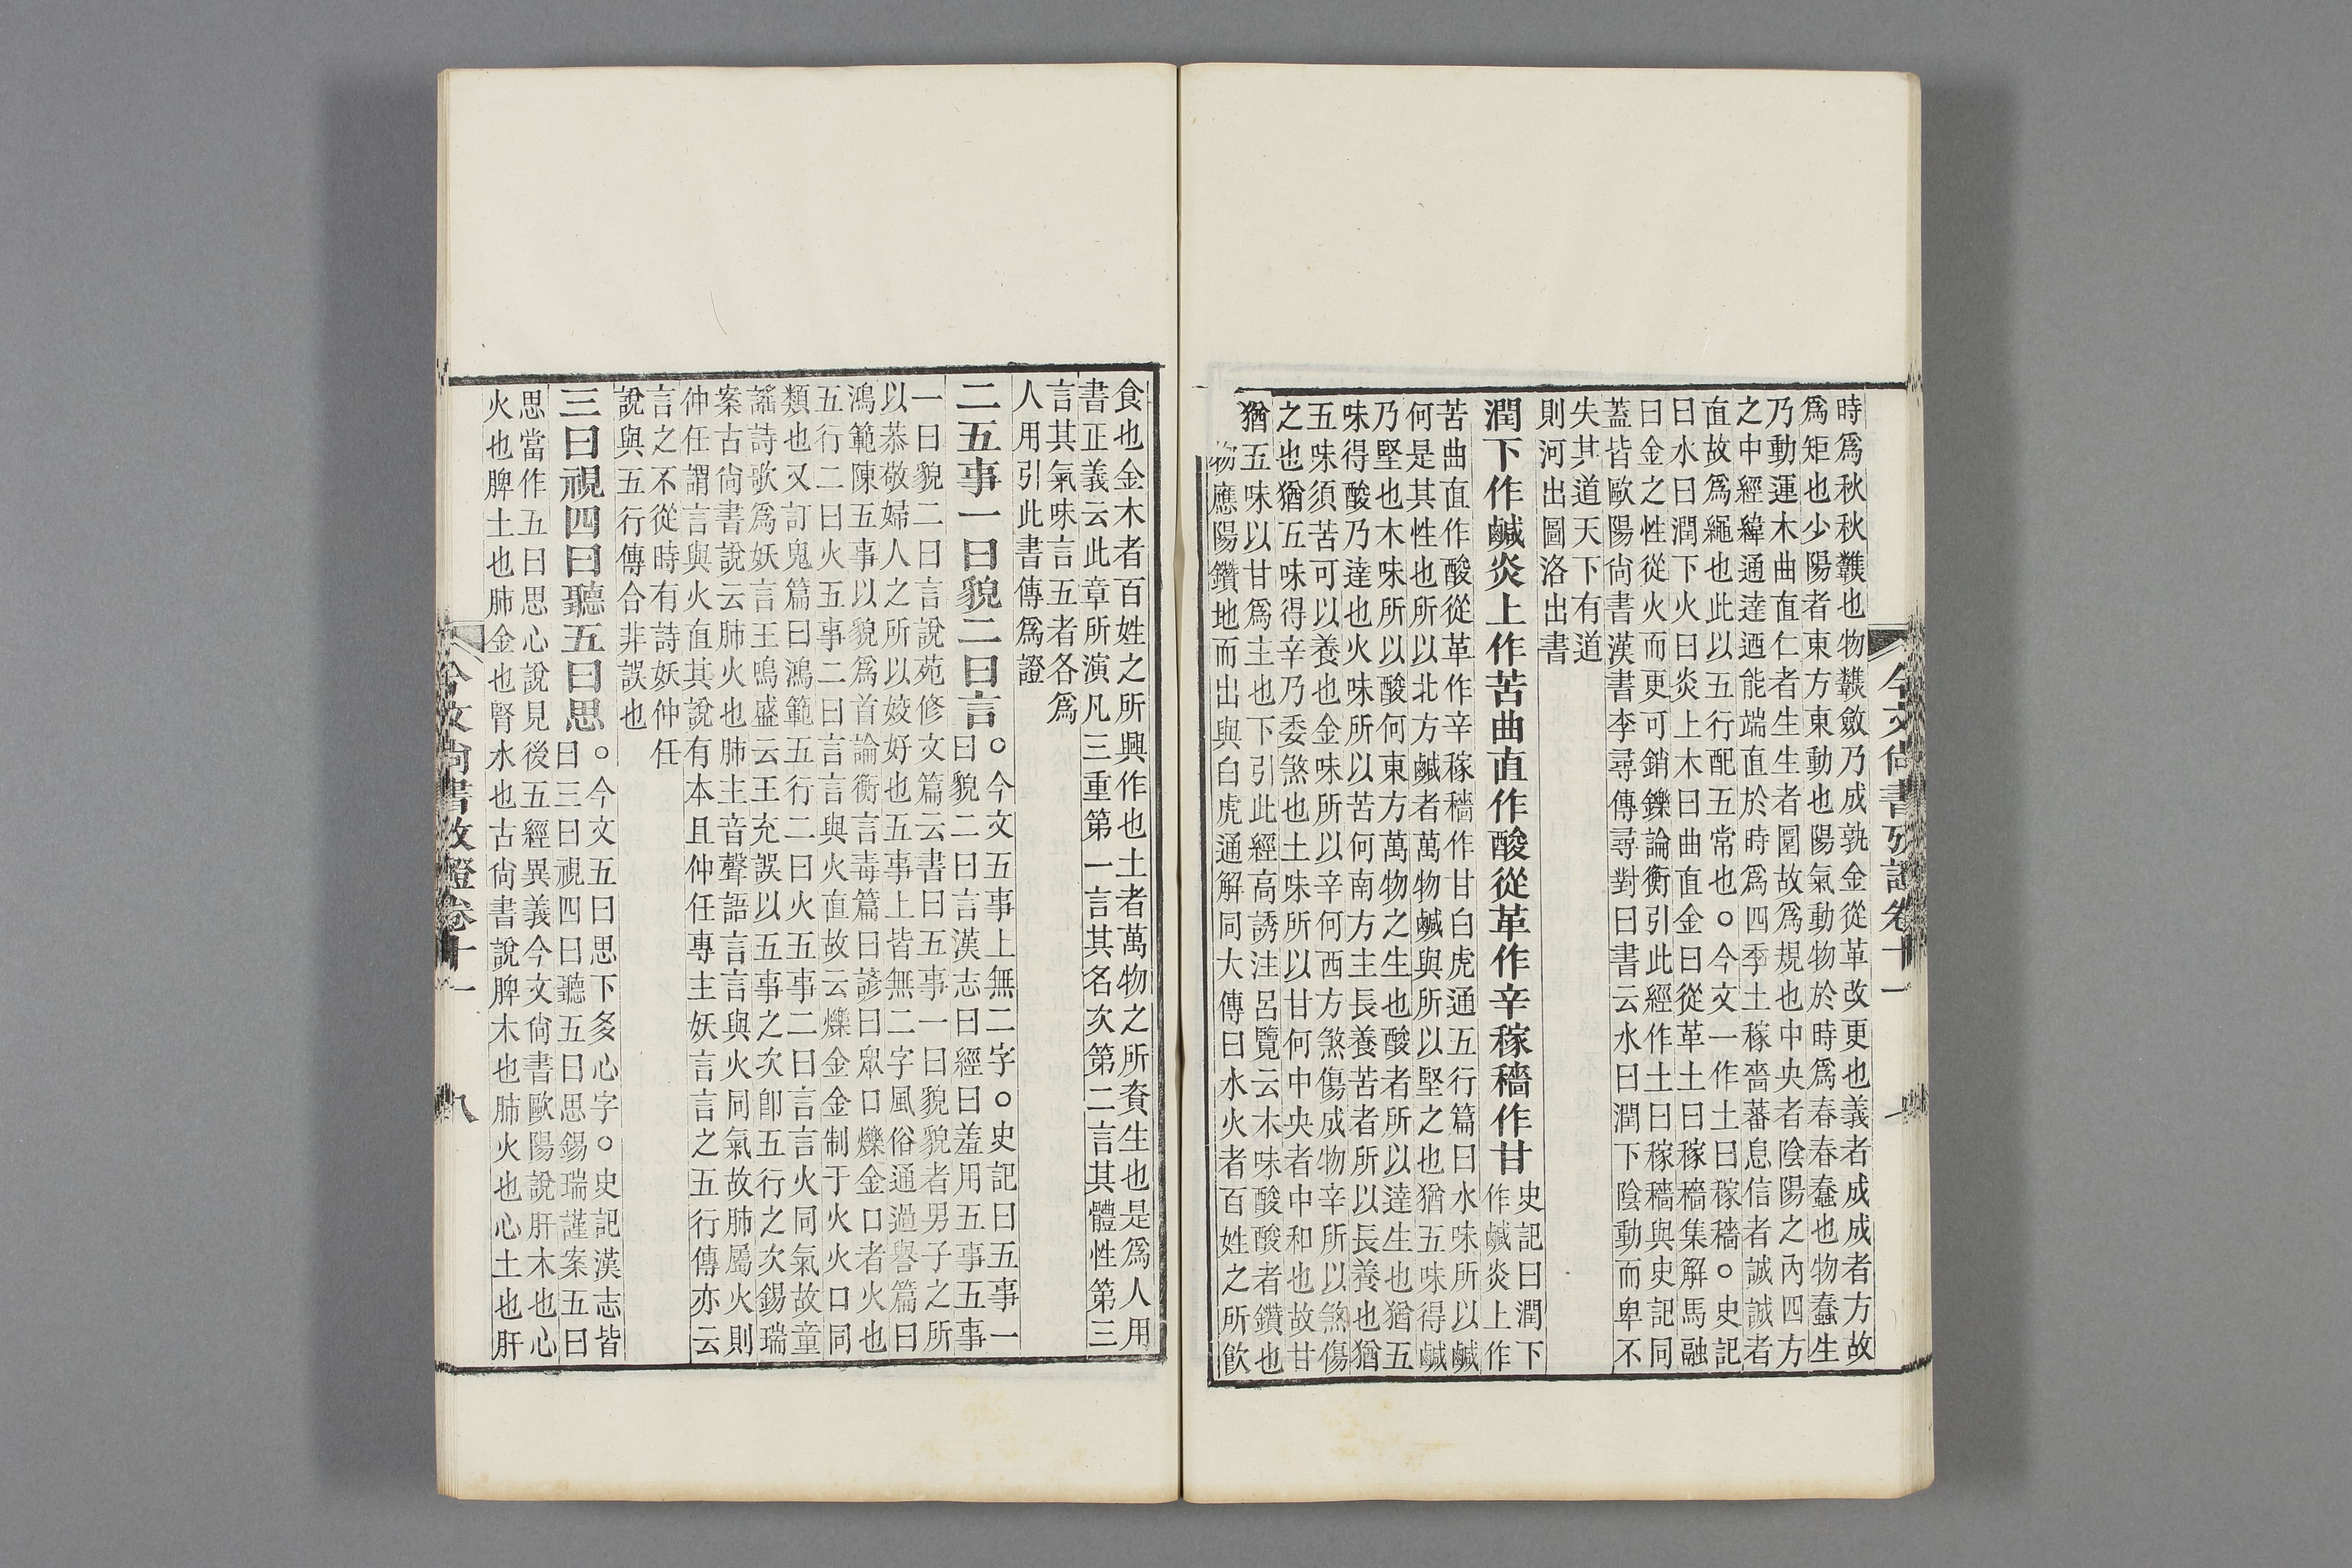 今文尚書攷證卷十一
時爲秋秋䊵也物䊵斂乃成孰金從革改更也義者成成者方故
爲矩也少陽者東方東動也陽氣動物於時爲春春蠢也物蠢生
乃動運木曲直仁者生生者圜故爲規也中央者陰陽之內四方
之中經緯通達迺能端直於時爲四季土稼嗇蕃息信者誠誠者
直故爲繩也此以五行配五常也○今文一作土曰稼穡○史記
曰水曰潤下火曰炎上木曰曲直金曰從革土曰稼穡集解馬融
曰金之性從火而更可銷鑠論衡引此經作土曰稼穡與史記同
蓋皆歐陽尙書漢書李尋傳尋對曰書云水曰潤下陰動而卑不
失其道天下有道
則河出圖洛出書
潤下作鹹炎上作苦曲直作酸從革作辛稼穡作甘
史記曰潤下
作鹹炎上作
苦曲直作酸從革作辛稼穡作甘白虎通五行篇曰水味所以鹹
何是其性也所以北方鹹者萬物鹹與所以堅之也猶五味得鹹
乃堅也木味所以酸何東方萬物之生也酸者所以達生也猶五
味得酸乃達也火味所以苦何南方主長養苦者所以長養也猶
五味須苦可以養也金味所以辛何西方煞傷成物辛所以煞傷
之也猶五味得辛乃委煞也土味所以甘何中央者中和也故甘
猶五味以甘爲主也下引此經高誘注呂覽云木味酸酸者鑽也
物應陽鑽地而出與白虎通解同大傳曰水火者百姓之所飲
食也金木者百姓之所興作也土者萬物之所資生也是爲人用
書正義云此章所演凡三重第一言其名次第二言其體性第三
言其氣味言五者各爲
人用引此書傳爲證
二五事一曰貌二曰言
○今文五事上無二字○史記曰五事一
曰貌二曰言漢志曰經曰羞用五事五事
一曰貌二曰言說苑修文篇云書曰五事一曰貌貌者男子之所
以恭敬婦人之所以姣好也五事上皆無二字風俗通過譽篇曰
鴻範陳五事以貌爲首論衡言毒篇曰諺曰眾口爍金口者火也
五行二曰火五事二曰言言與火直故云爍金金制于火火口同
類也又訂鬼篇曰鴻範五行二曰火五事二曰言言火同氣故童
謠詩歌爲妖言王鳴盛云王充誤以五事之次卽五行之次錫瑞
案古尙書說云肺火也肺主音聲語言言與火同氣故肺屬火則
仲任謂言與火直其說有本且仲任專主妖言言之五行傳亦云
言之不從時有詩妖仲任
說與五行傳合非誤也
三曰視四曰聽五曰思
○今文五曰思下多心字○史記漢志皆
曰三曰視四曰聽五曰思錫瑞謹案五曰
思當作五曰思心說見後五經異義今文尙書歐陽說肝木也心
火也脾土也肺金也腎水也古尙書說脾木也肺火也心土也肝
今文尙書攷證卷十一
八